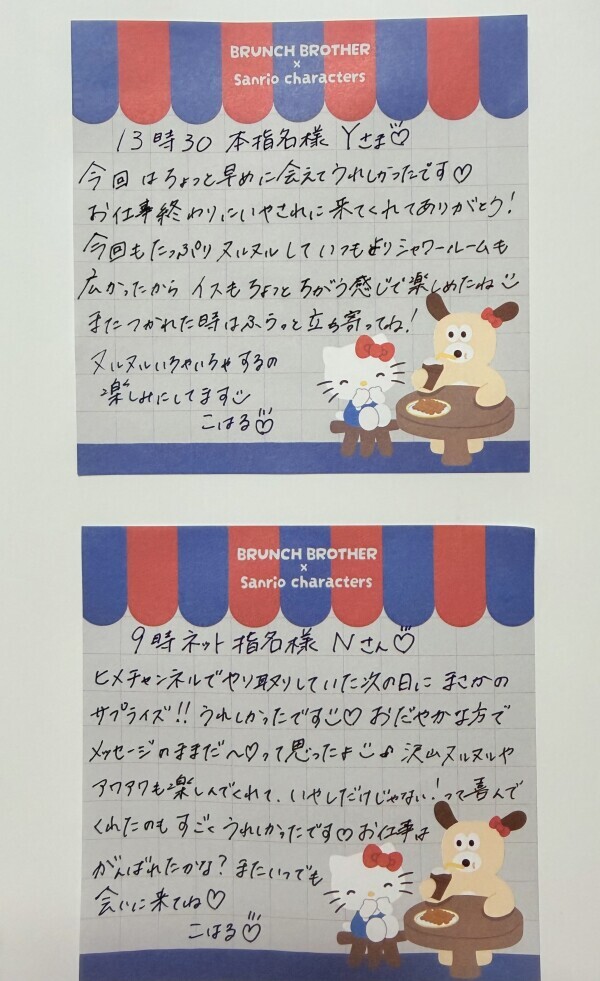 BRUNCH BROTHER
×
Sanrio characters
13時30 本指名様 Yさま♡
今回はちょっと早めに会えてうれしかったです♡
お仕事終わりにいやされに来てくれてありがとう!
今回もたっぷりヌルヌルしていつもよりシャワールームも
広かったから イスもちょっとちがう感じで楽しめたね
またつかれた時はふらっと立ち寄ってね!
ヌルヌルいちゃいちゃするの
楽しみにしてます
こはる♡
BRUNCH BROTHER
×
Sanrio characters
9時ネット指名様 Nさん♡
ヒメチャンネルでやり取りしていた次の日に まさかの
サプライズ!! うれしかったです♡ おだやかな方で
メッセージのままだ〜♡って思ったよ♪ 沢山ヌルヌルや
アワアワも楽しんでくれて、いやしだけじゃない!って喜んで
くれたのも すごく うれしかったです♡ お仕事は
がんばれたかな? またいつでも
会いに来てね♡
こはる♡